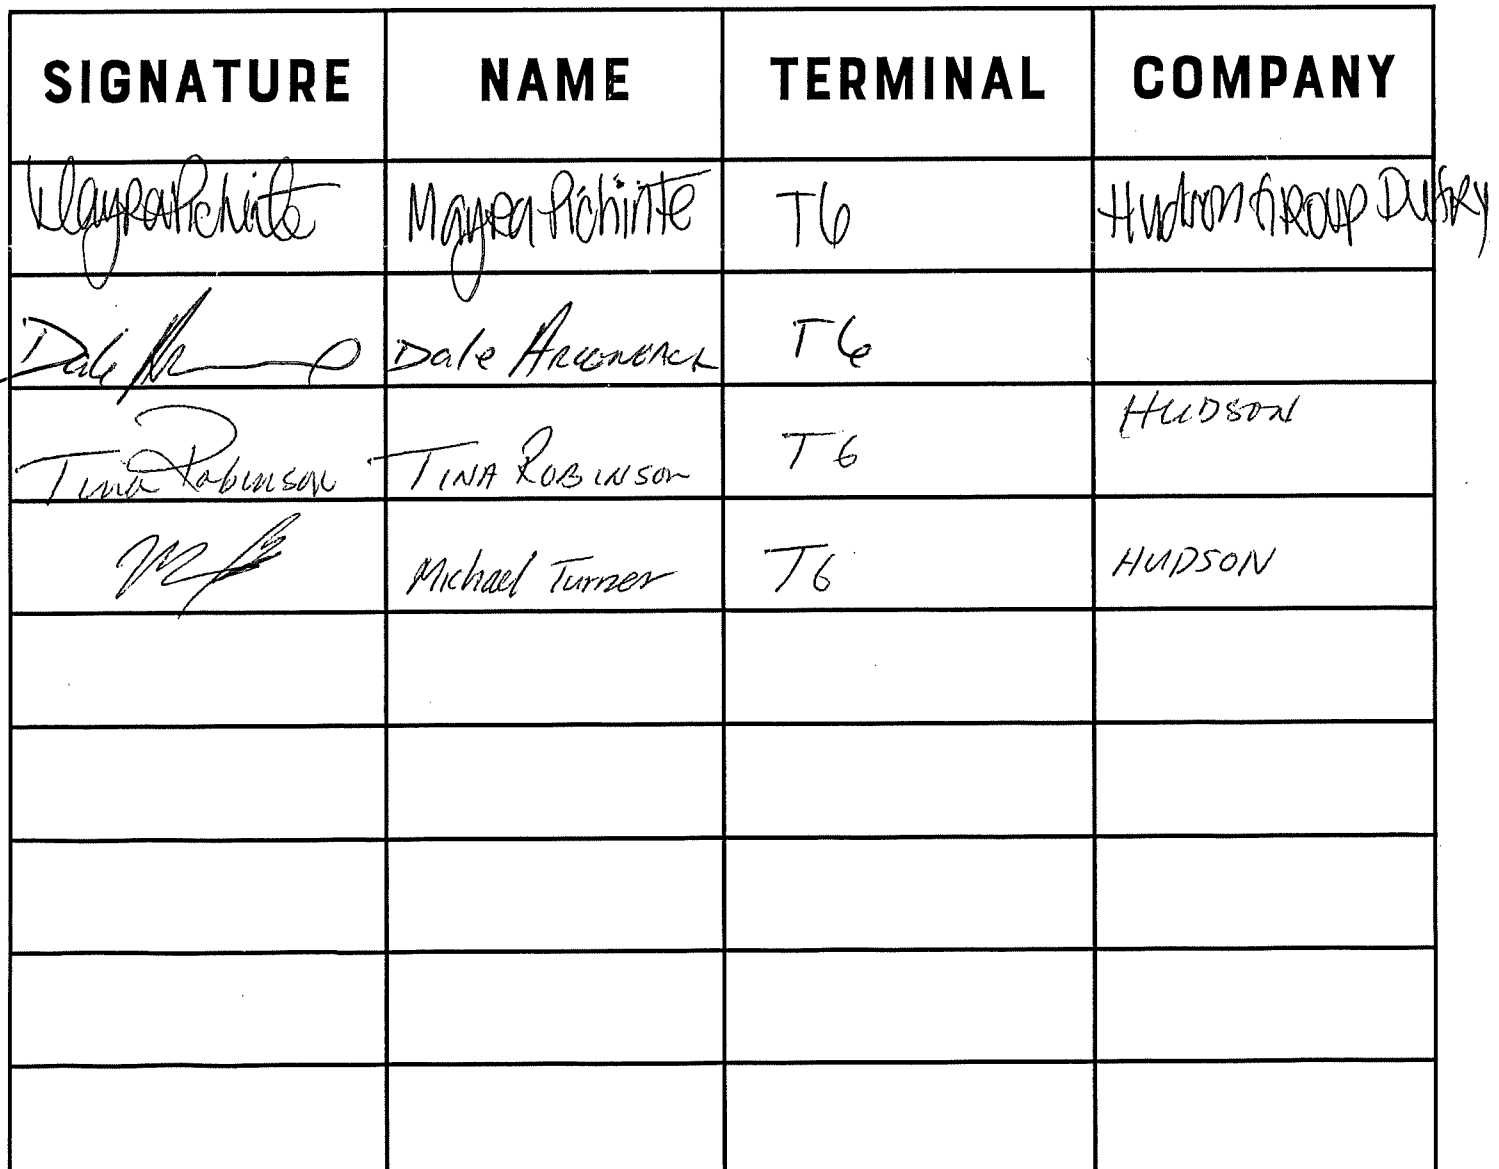 SIGNATURE NAME TERMINAL COMPANY
Mayra Pichinte Mayra Pichinte T6 Hudson Group Dufry
Dale Dale T6
Tina Robinson TINA ROBINSON T6 HUDSON
Michael Turner T6 HUDSON